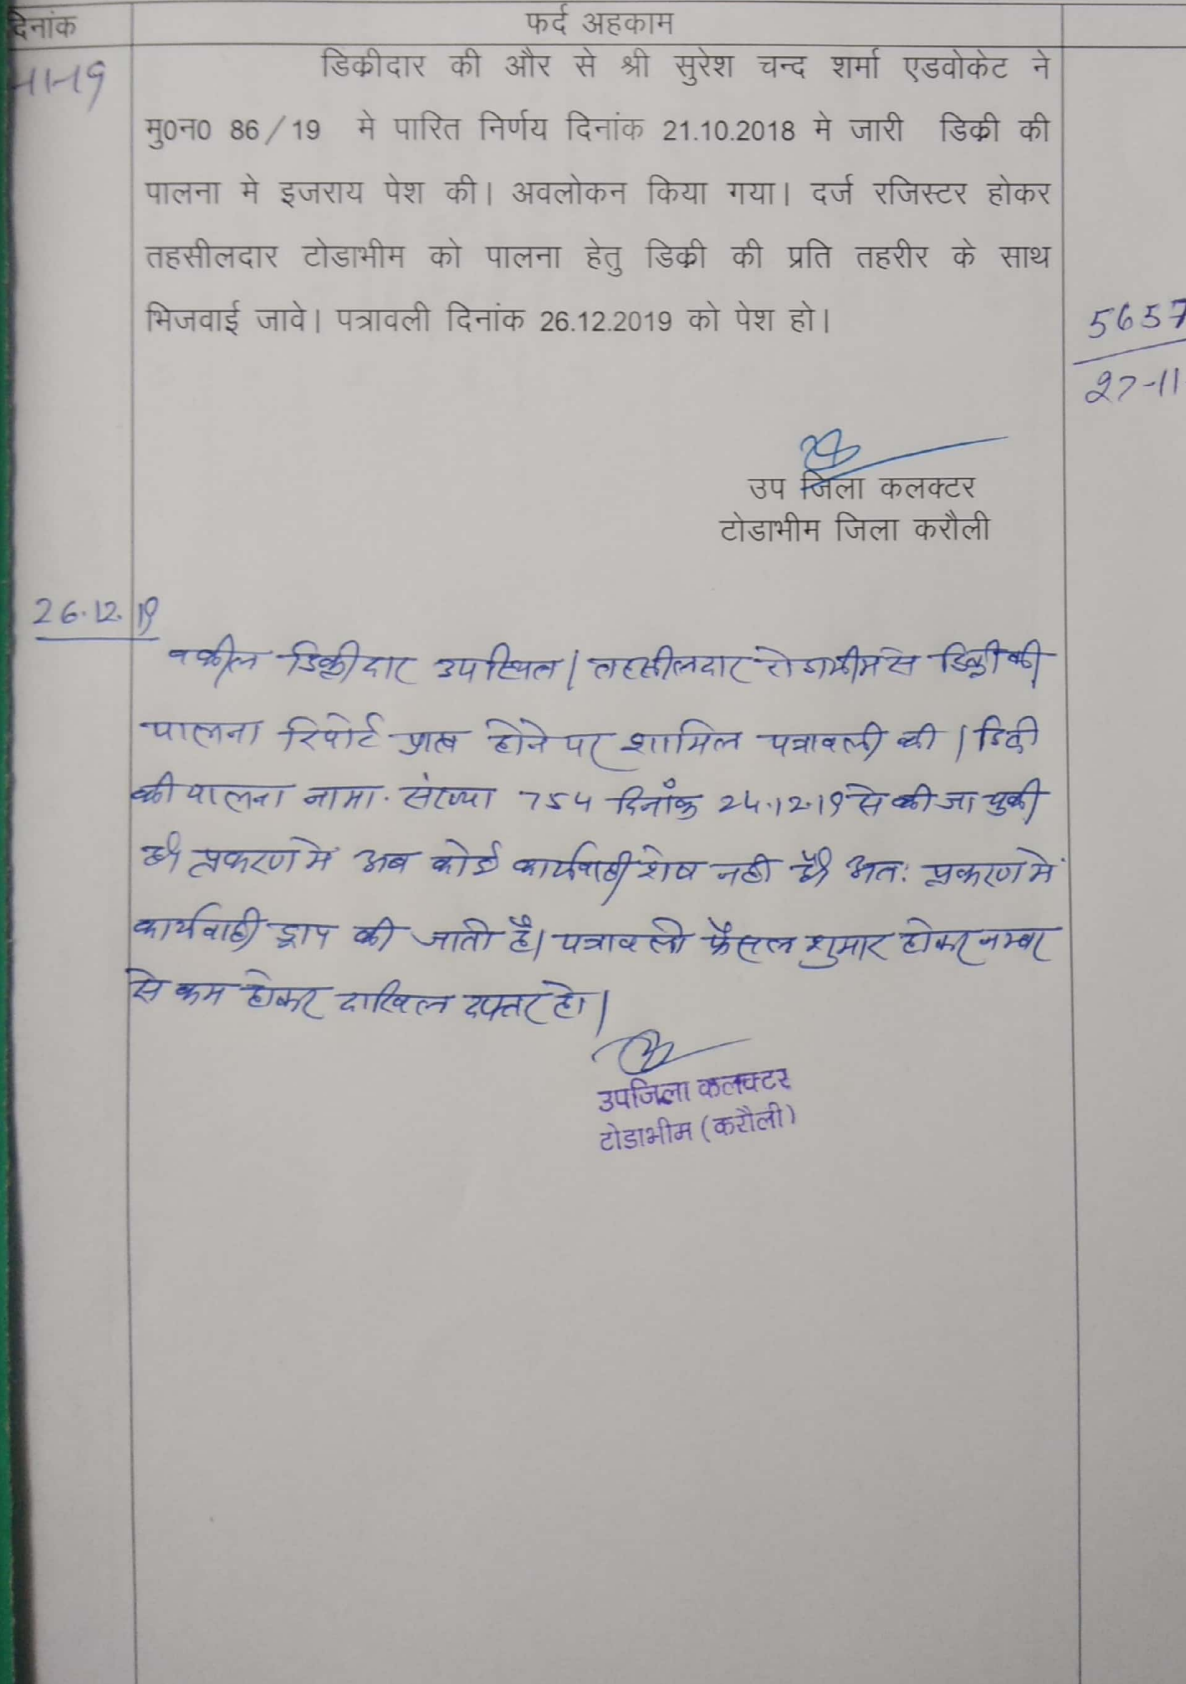 दिनांक
फर्द अहकाम
-11-19
डिक्रीदार की और से श्री सुरेश चन्द शर्मा एडवोकेट ने
मु0न0 86/19 मे पारित निर्णय दिनांक 21.10.2018 मे जारी डिक्री की
पालना मे इजराय पेश की। अवलोकन किया गया। दर्ज रजिस्टर होकर
तहसीलदार टोडाभीम को पालना हेतु डिक्री की प्रति तहरीर के साथ
भिजवाई जावे। पत्रावली दिनांक 26.12.2019 को पेश हो।
5657
27-11
उप जिला कलक्टर
टोडाभीम जिला करौली
26.12.19
वकील डिक्रीदार उपस्थित। तहसीलदार टोडाभीम से डिक्री की
पालना रिपोर्ट प्राप्त होने पर शामिल पत्रावली की। डिक्री
की पालना नामा. संख्या 754 दिनांक 24.12.19 से की जा चुकी
है। प्रकरण में अब कोई कार्यवाही शेष नही है। अतः प्रकरण में
कार्यवाही ड्राप की जाती है। पत्रावली फैसल शुमार होकर नम्बर
से कम होकर दाखिल दफ्तर हो।
उपजिला कलक्टर
टोडाभीम (करौली)